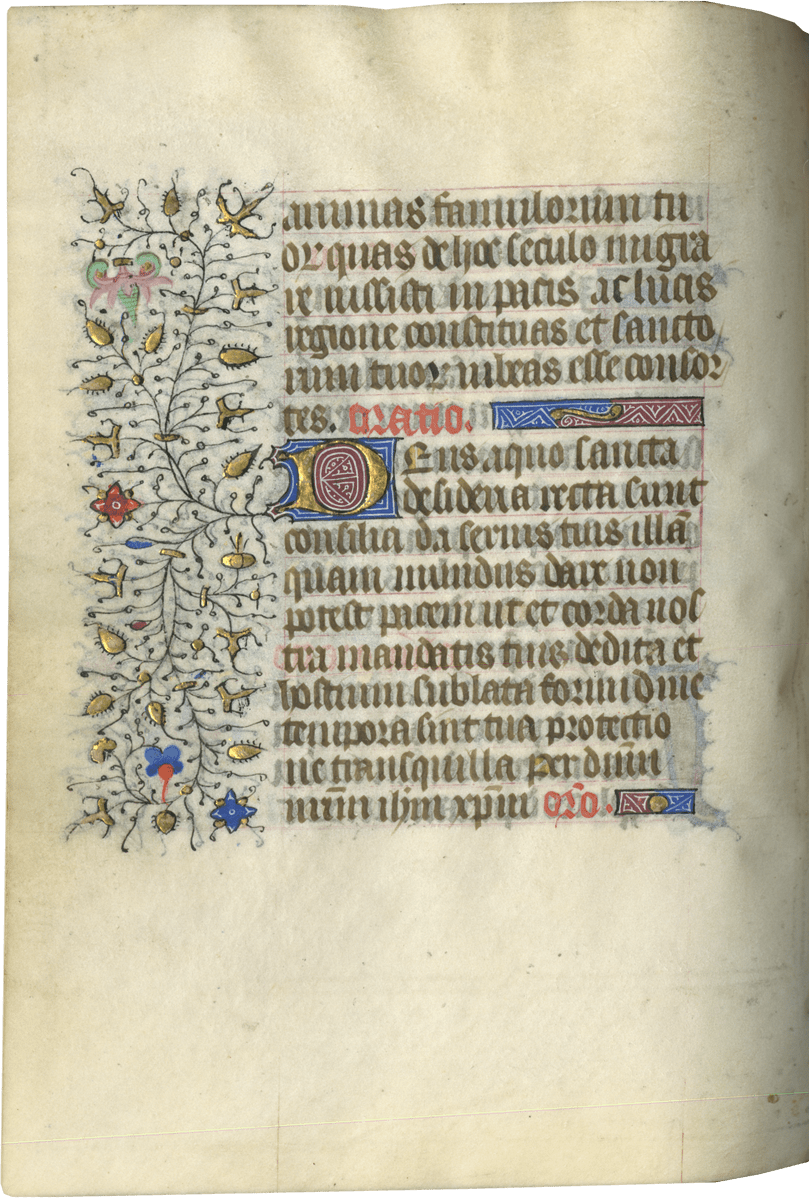 animas famulorum tu
orquas de hoc seculo migra
re iussisti in pacis ac lucis
regione constituas et sancto
rum tuor iubeas esse consor
tes. Oratio.
Deus aquo sancta
desideria recta sunt
consilia da seruis tuis illā
quam mundus dare non
potest pacem ut et corda nos
tra mandatis tuis dedita et
hostium sublata formidine
tempora sint tua protectio
ne tranquilla per dnm̄
nrm̄ ihm xpm̄ Orō.